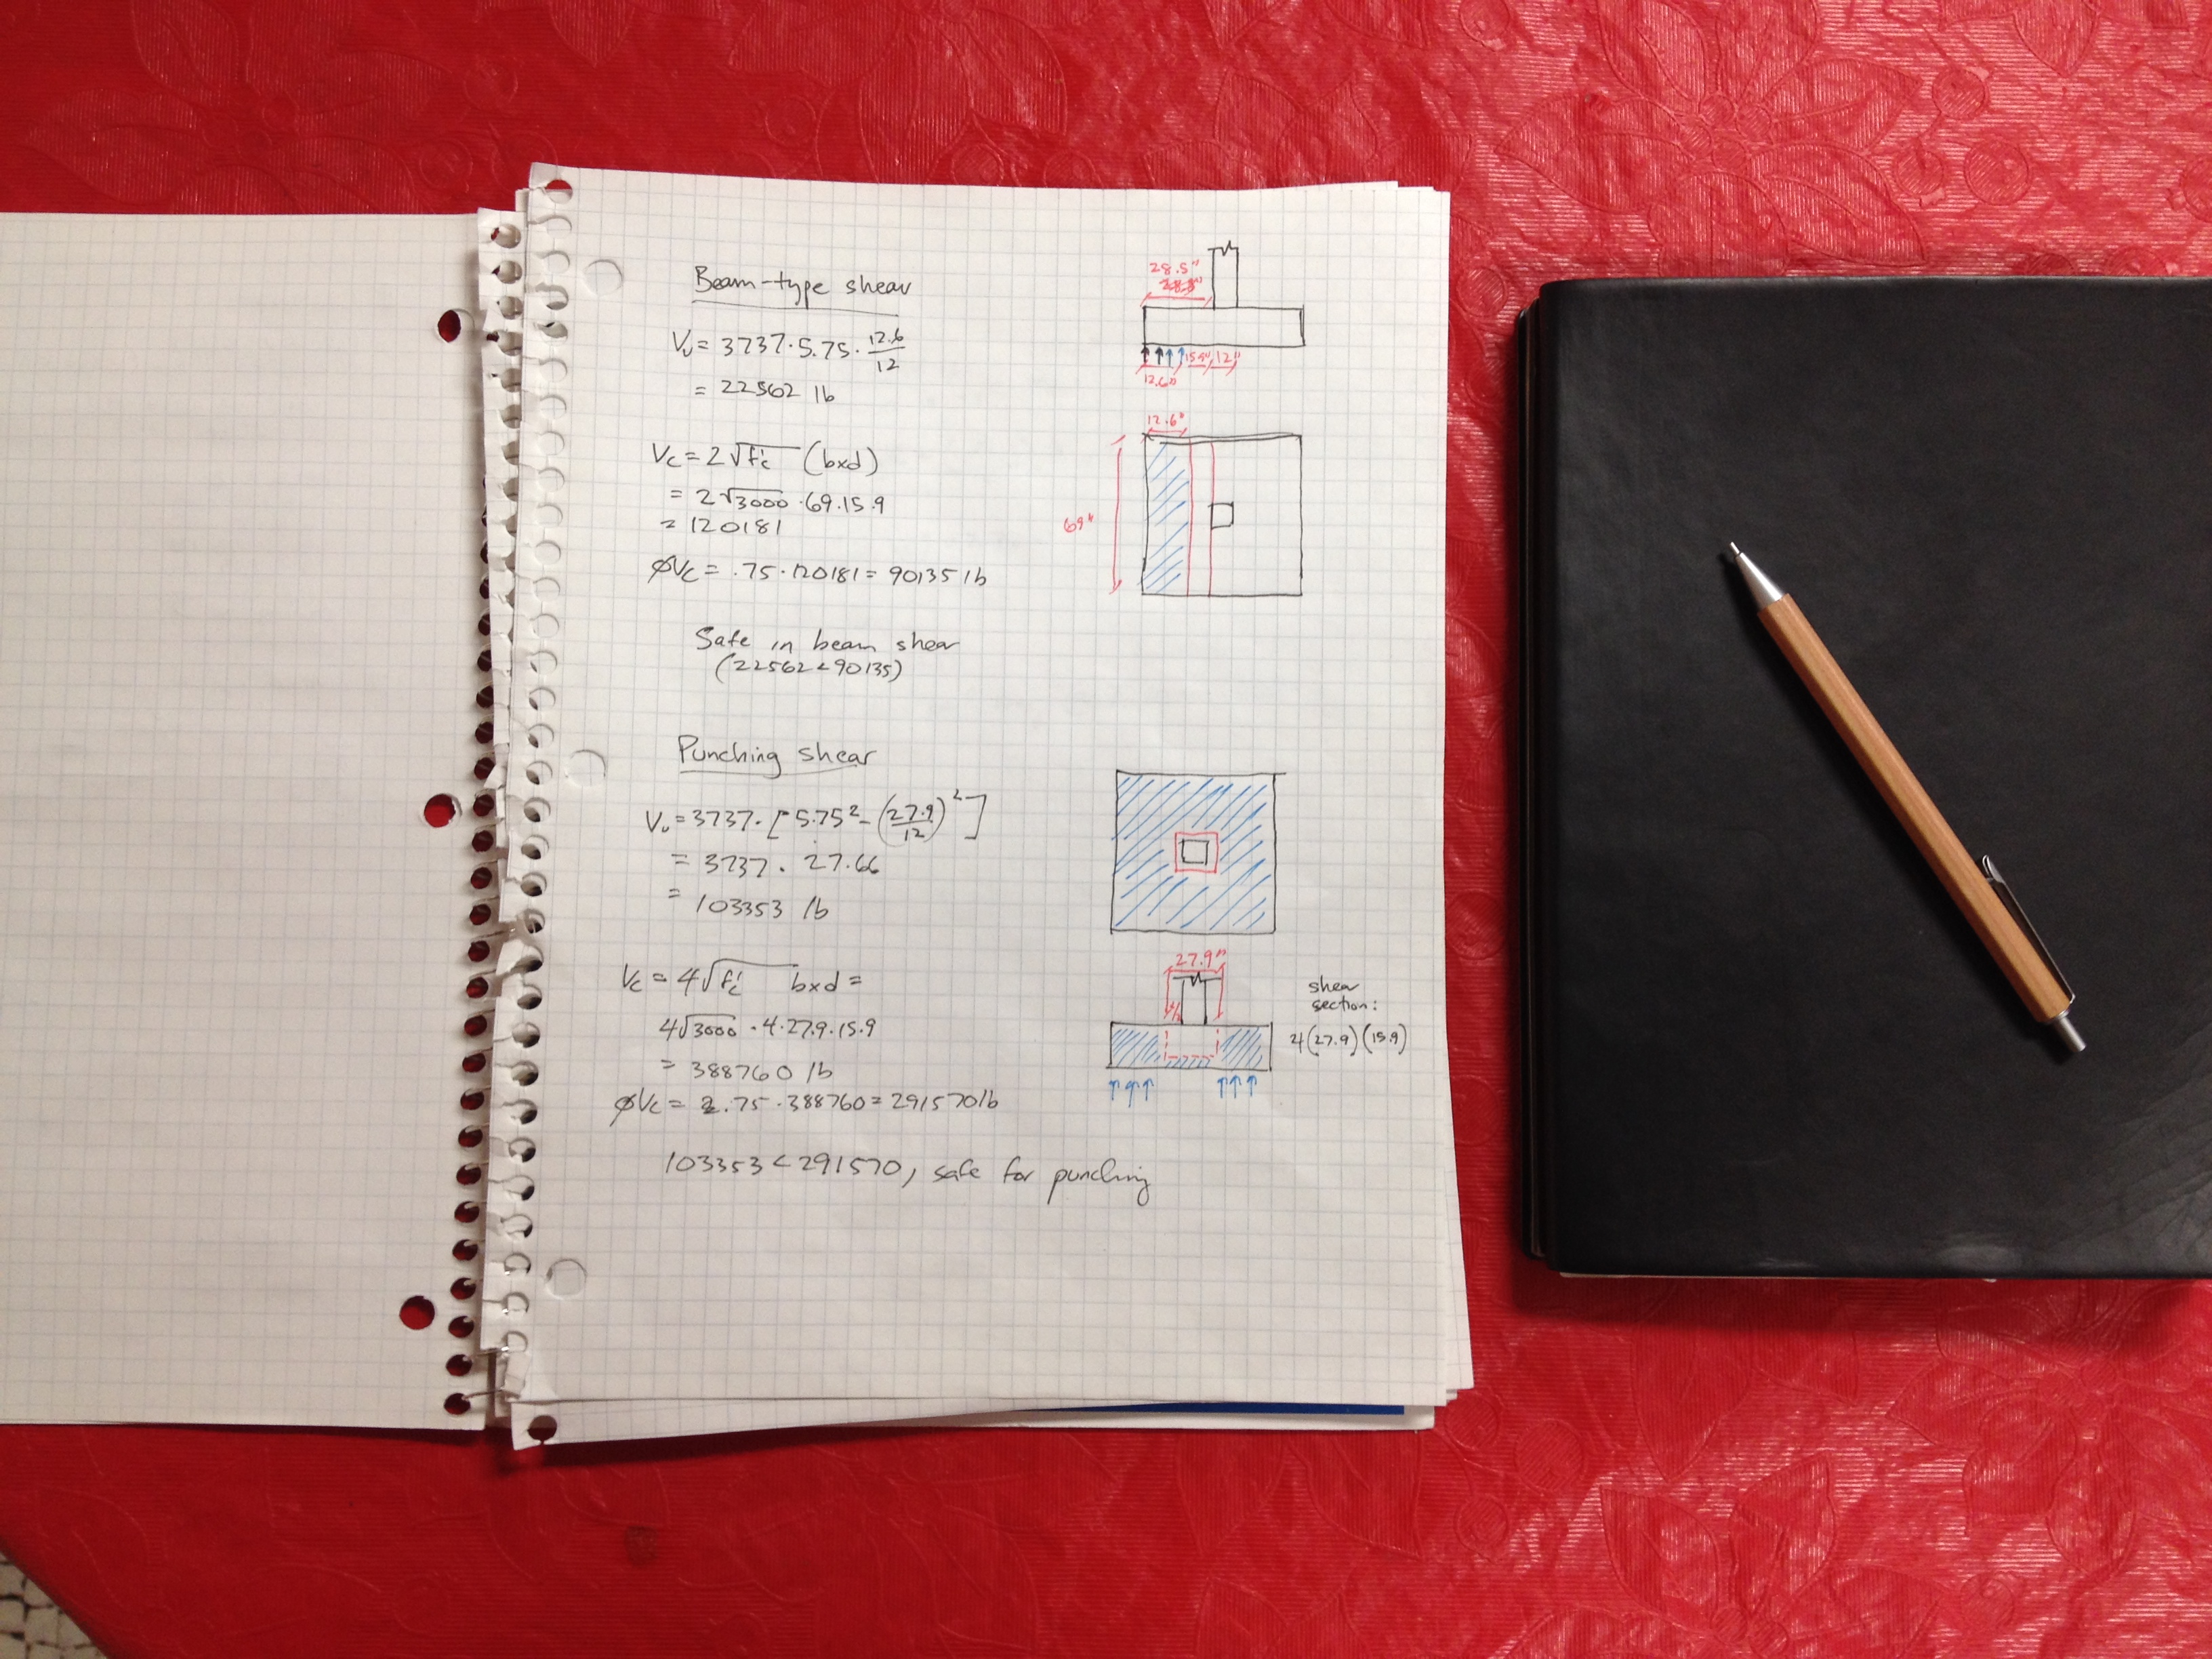 Beam-type shear
Vu = 3737 · 5.75 · 12.6/12
= 22562 lb
Vc = 2√f'c (bxd)
= 2√3000 · 69 · 15.9
= 120181
ØVc = .75 · 120181 = 90135 lb
Safe in beam shear
(22562 < 90135)
28.5"
12.6"
15.9"
12"
12.6"
69"
Punching shear
Vu = 3737 · [5.75² - (27.9/12)²]
= 3737 · 27.66
= 103353 lb
Vc = 4√f'c bxd =
4√3000 · 4 · 27.9 · 15.9
= 388760 lb
ØVc = .75 · 388760 = 291570 lb
103353 < 291570, safe for punching
27.9"
shear
section:
4(27.9)(15.9)